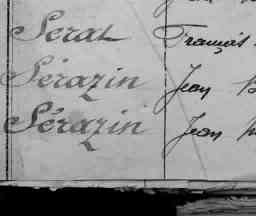 Serat François
Sérazin Jean
Sérazin Jean